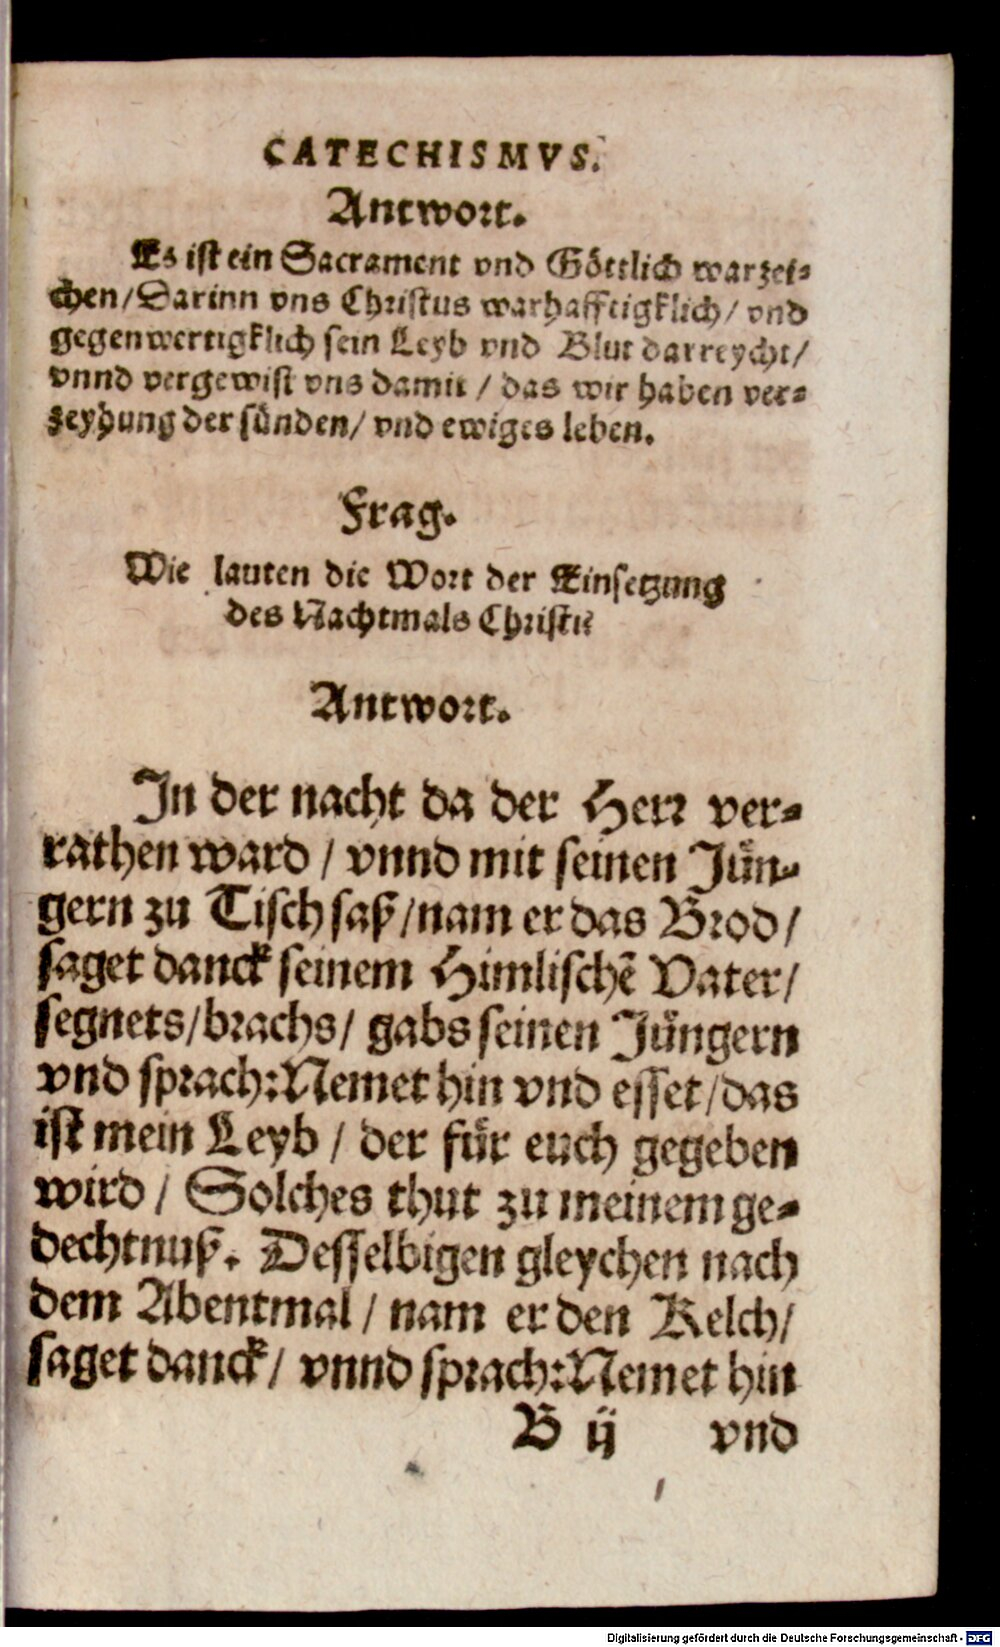 CATECHISMVS.
Antwort.
Es ist ein Sacrament vnd Göttlich warzei-
chen/Darinn vns Christus warhafftigklich/ vnd
gegenwertigklich sein Leyb vnd Blut darreycht/
vnnd vergewist vns damit / das wir haben ver-
zeyhung der sünden/ vnd ewiges leben.
Frag.
Wie lauten die Wort der Einsetzung
des Nachtmals Christi?
Antwort.
In der nacht da der Herr ver-
rathen ward / vnnd mit seinen Jün-
gern zu Tisch saß/nam er das Brod/
saget danck seinem Himlischē Vater/
segnets/brachs/ gabs seinen Jüngern
vnd sprach:Nemet hin vnd esset/das
ist mein Leyb / der für euch gegeben
wird / Solches thut zu meinem ge-
dechtnuß. Desselbigen gleychen nach
dem Abentmal / nam er den Kelch/
saget danck/ vnnd sprach:Nemet hin
B ij vnd
Digitalisierung gefördert durch die Deutsche Forschungsgemeinschaft - DFG